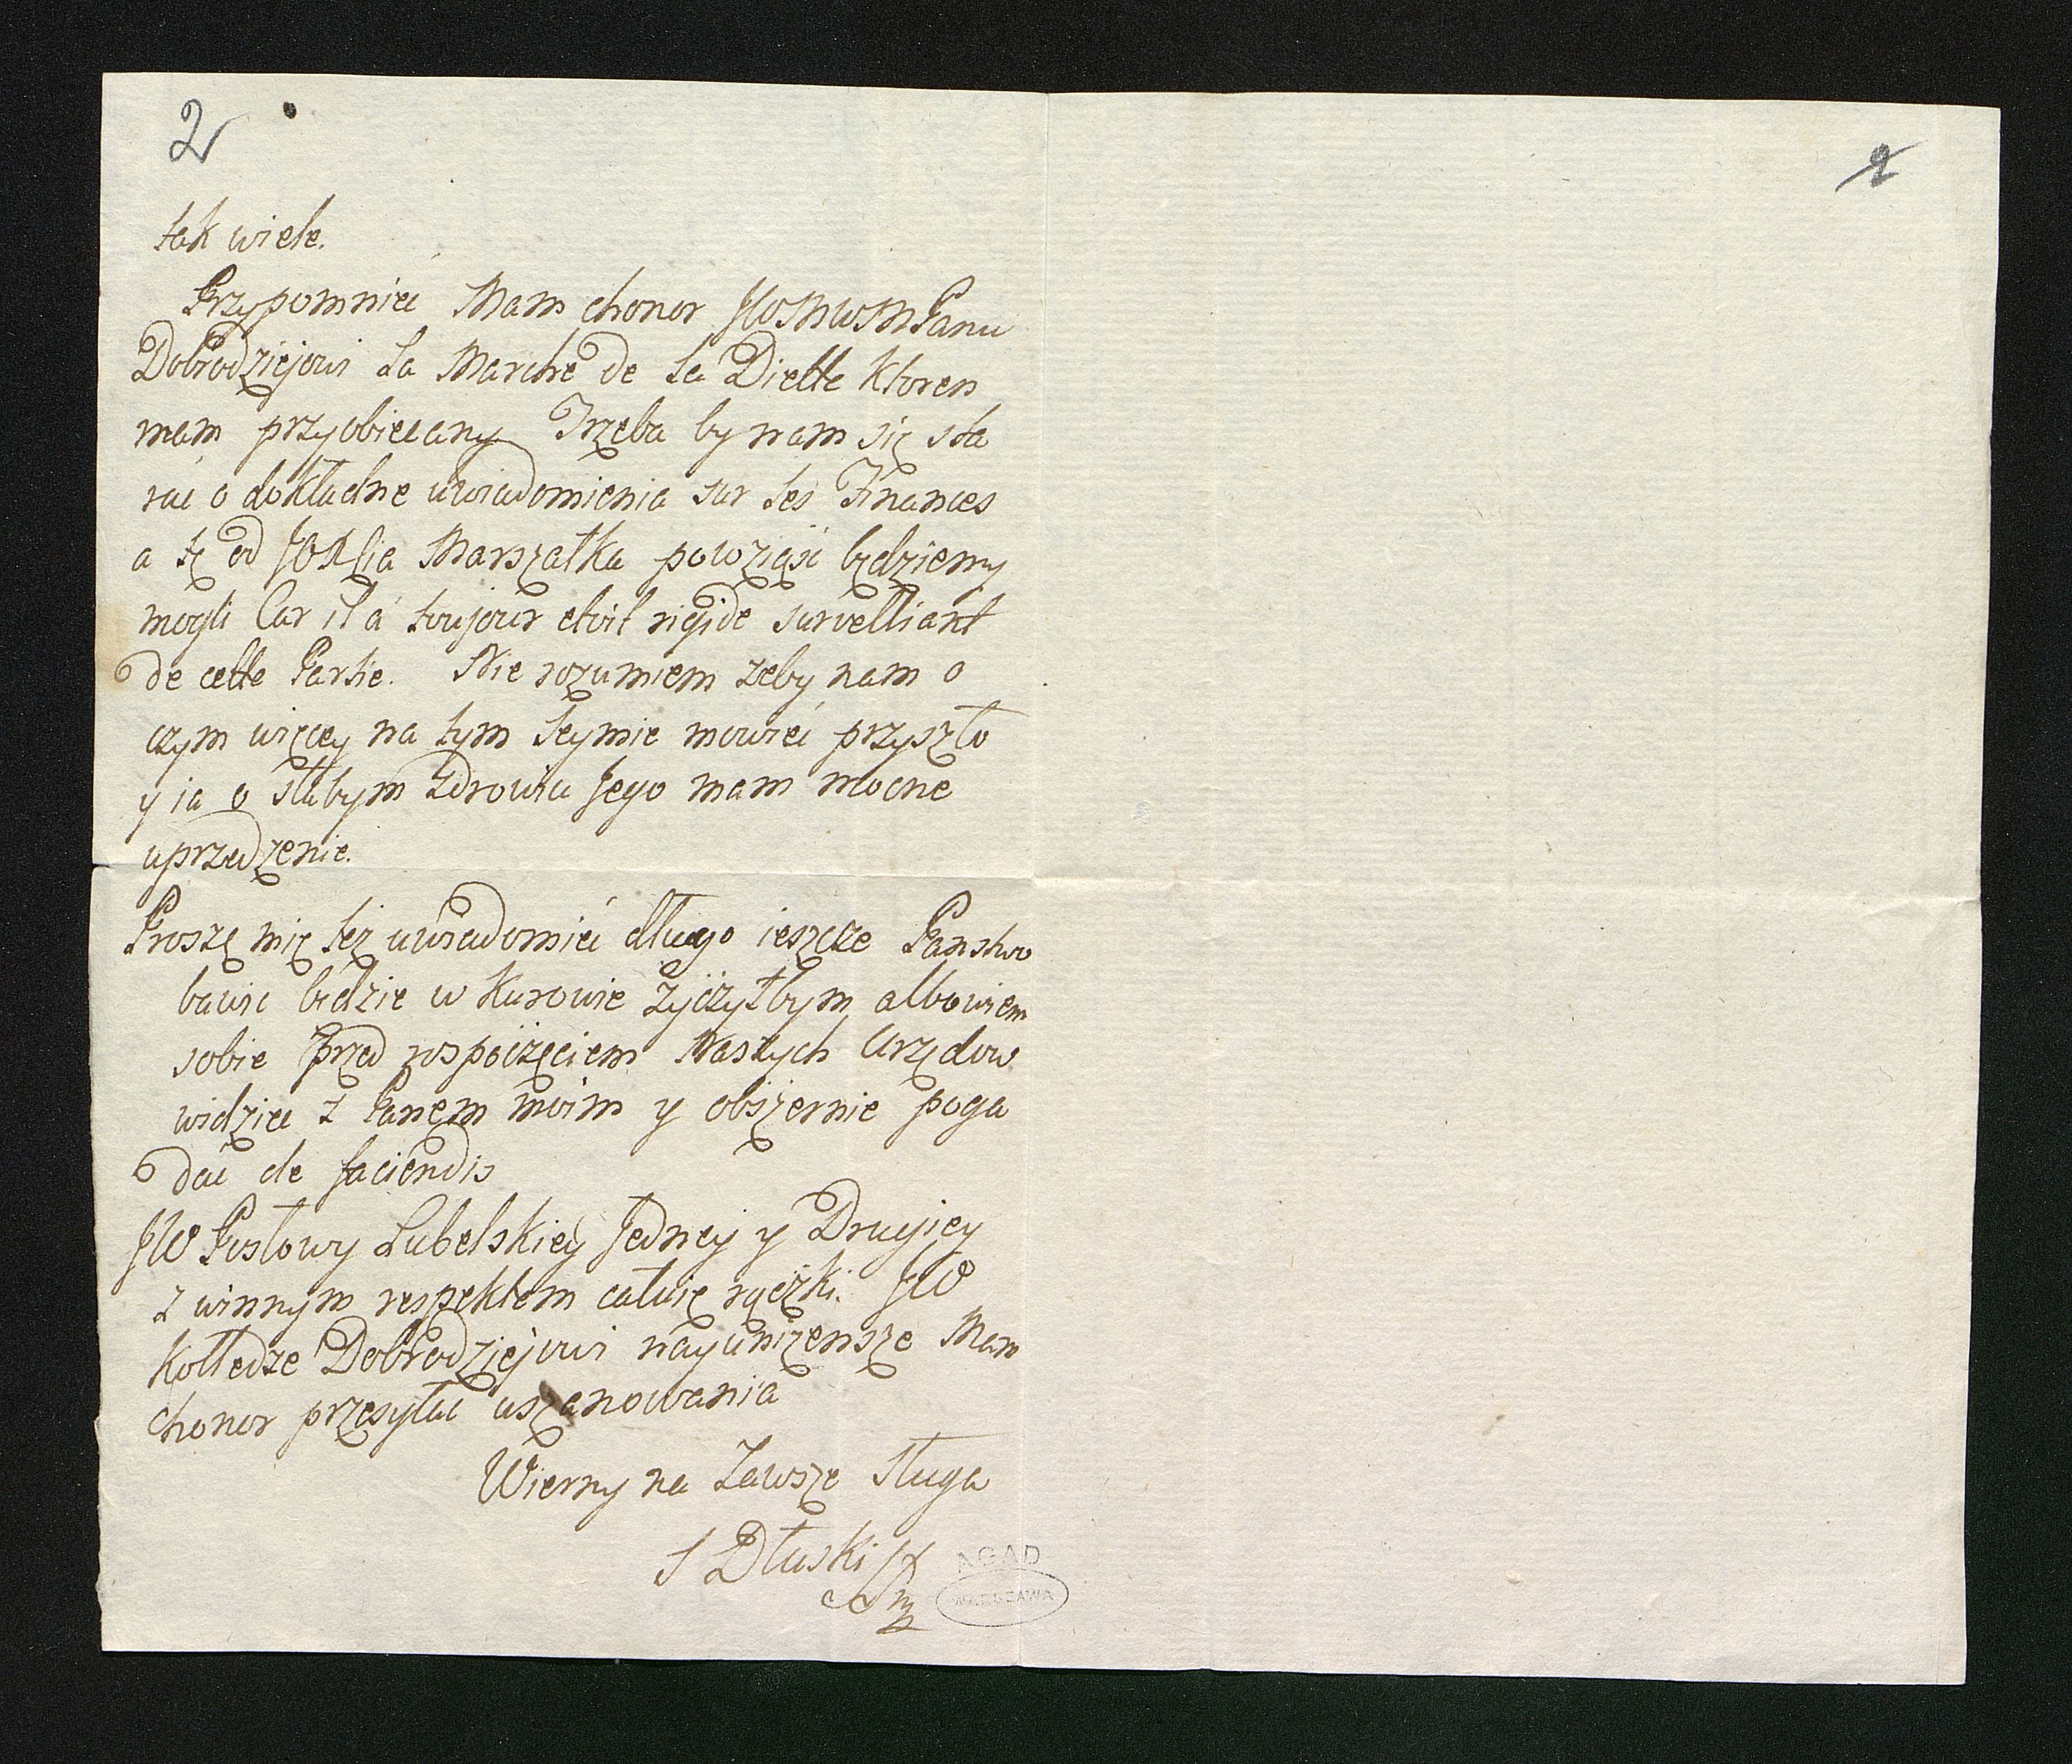 2
2
tak wiele.
Przypomnieć Mam chonor JWMWMPanu
Dobrodziejowi La Marche de La Diette ktoren
mam przyobiecany Trzeba by nam się sta
rać o dokładne uwiadomienia sur les Finances
a tę od Marszałka powziąść będziemy
mogli Car il á toujour etoit rigide survelliant
de cette Partie. Nie rozumiem zeby nam o
czym więcey na tym Seymie mowić przyszło
y ia o słabym Zdrowiu Jego mam mocne
uprzedzenie.
Proszę mię też uwiadomić długo ieszcze Panstwo
bawić bedzie w Kurowie życzyłbym albowiem
sobie przed rospoczęciem Naszych Urzędow
widzieć z Panem moim y obszernie poga
dać de faciendis
JW Posłowy Lubelskiey Jedney y Drugiey
z winnym respektem całuię rączki. JW
Kolledze Dobrodziejowi nayunizensze Mam
chonor przesyłać uszanowania
Wierny na Zawsze Sługa
S Dłuski
AGAD
WARSZAWA